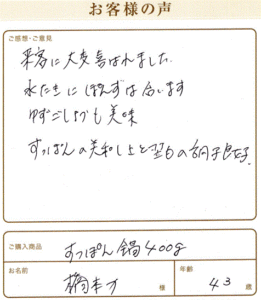 お客様の声
ご感想・ご意見
来客に大変喜ばれました
水たきに ぽんずは合います
ゆずごしょうも美味
すっぽんの美和し上と翌日の調子良好.
ご購入商品
すっぽん鍋400g
お名前
様
年齢
43
歳